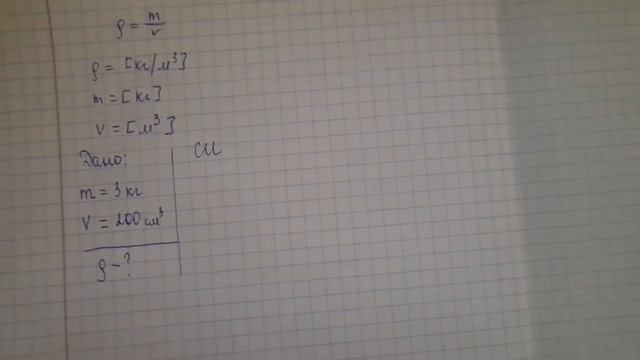 ρ = m/v
ρ = [кг/м³]
m = [кг]
v = [м³]
Дано: СИ
m = 3 кг
V = 200 см³
ρ - ?